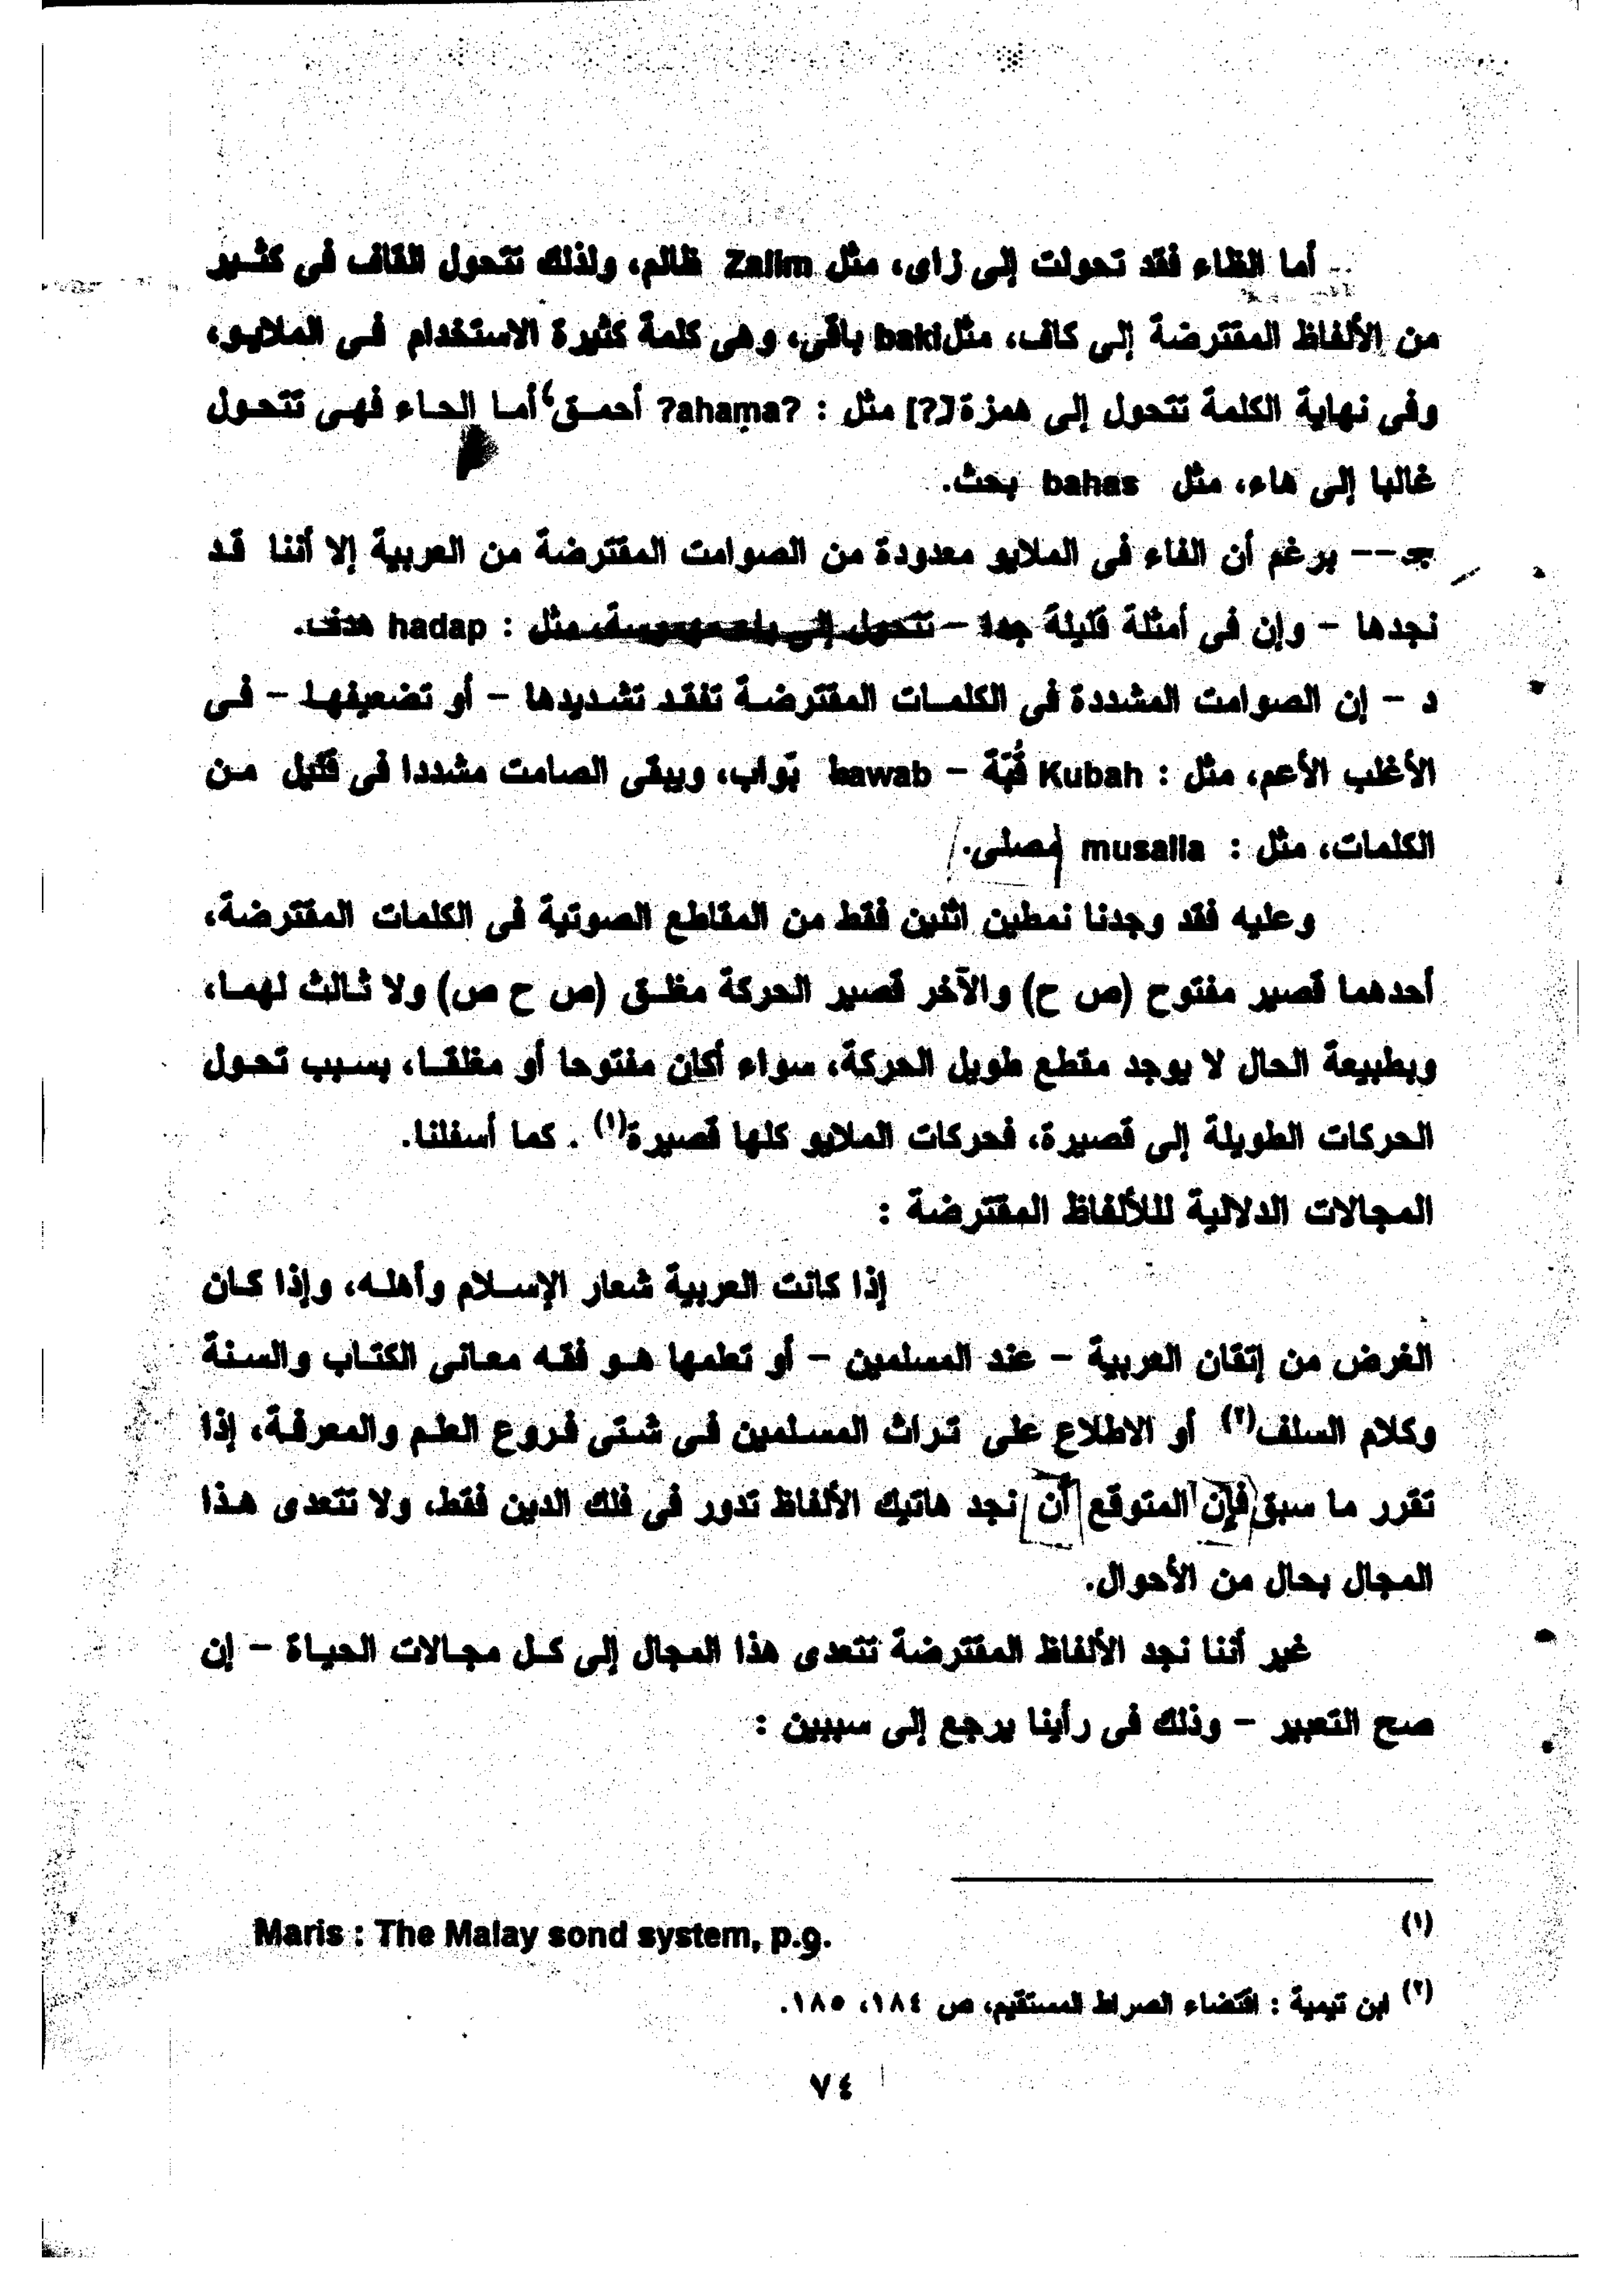 أما الظاء فقد تحولت إلى زاى، مثل Zalim ظالم، ولذلك تتحول القاف فى كثير
من الألفاظ المقترضة إلى كاف، مثل baki باقى، وهى كلمة كثيرة الاستخدام فى الملايو،
وفى نهاية الكلمة تتحول إلى همزة [?] مثل : ?ahama? أحمق، أما الحاء فهى تتحول
غالبا إلى هاء، مثل bahas بحث.
جـ -- برغم أن الفاء فى الملايو معدودة من الصوامت المقترضة من العربية إلا أننا قد
نجدها - وإن فى أمثلة قليلة جدا - تتحول إلى باء مهموسة، مثل : hadap هدف.
د - إن الصوامت المشددة فى الكلمات المقترضة تفقد تشديدها - أو تضعيفها - فى
الأغلب الأعم، مثل : Kubah قُبّة - bawab بّواب، ويبقى الصامت مشددا فى قليل من
الكلمات، مثل : musalla مصلى.
وعليه فقد وجدنا نمطين اثنين فقط من المقاطع الصوتية فى الكلمات المقترضة،
أحدهما قصير مفتوح (ص ح) والآخر قصير الحركة مغلق (ص ح ص) ولا ثالث لهما،
وبطبيعة الحال لا يوجد مقطع طويل الحركة، سواء أكان مفتوحا أو مغلقا، بسبب تحول
الحركات الطويلة إلى قصيرة، فحركات الملايو كلها قصيرة(١) . كما أسفلنا.
المجالات الدلالية للألفاظ المقترضة :
إذا كانت العربية شعار الإسلام وأهله، وإذا كان
الغرض من إتقان العربية - عند المسلمين - أو تعلمها هو فقه معانى الكتاب والسنة
وكلام السلف(٢) أو الاطلاع على تراث المسلمين فى شتى فروع العلم والمعرفة، إذا
تقرر ما سبق فإن المتوقع أن نجد هاتيك الألفاظ تدور فى فلك الدين فقط، ولا تتعدى هذا
المجال بحال من الأحوال.
غير أننا نجد الألفاظ المقترضة تتعدى هذا المجال إلى كل مجالات الحياة - إن
صح التعبير - وذلك فى رأينا يرجع إلى سببين :
(١) Maris : The Malay sond system, p.9.
(٢) ابن تيمية : اقتضاء الصراط المستقيم، ص ١٨٤، ١٨٥.
٧٤